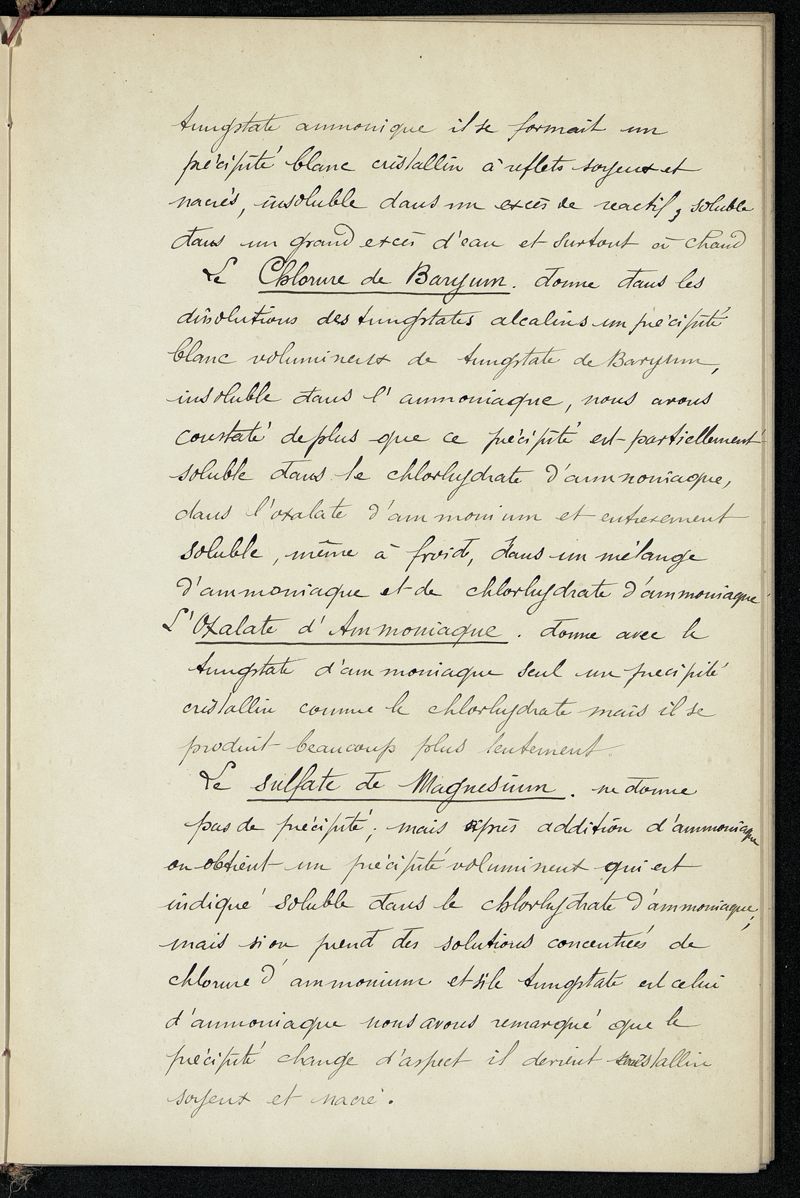 tungstate ammonique il se formait un
précipité blanc cristallin à reflets soyeux et
nacrés, insoluble dans un excès de reactif, soluble
dans un grand excès d'eau et surtout à chaud
Le Chlorure de Baryum. donne dans les
dissolutions des tungstates alcalins un précipité
blanc volumineux de tungstate de Baryum,
insoluble dans l'ammoniaque, nous avons
constaté de plus que ce précipité est partiellement
soluble dans le chlorhydrate d'ammoniaque,
dans l'oxalate d'ammonium et entierement
soluble, même à froid, dans un mélange
d'ammoniaque et de chlorhydrate d'ammoniaque
L'Oxalate d'Ammoniaque. donne avec le
tungstate d'ammoniaque seul un precipité
cristallin comme le chlorhydrate mais il se
produit beaucoup plus lentement.
Le sulfate de Magnesium. ne donne
pas de précipité; mais après addition d'ammoniaque
on obtient un précipité volumineux qui est
indiqué soluble dans le chlorhydrate d'ammoniaque;
mais si on prend des solutions concentrées de
chlorure d'ammonium et si le tungstate est celui
d'ammoniaque nous avons remarqué que le
précipité change d'aspect il devient cristallin
soyeux et nacré.